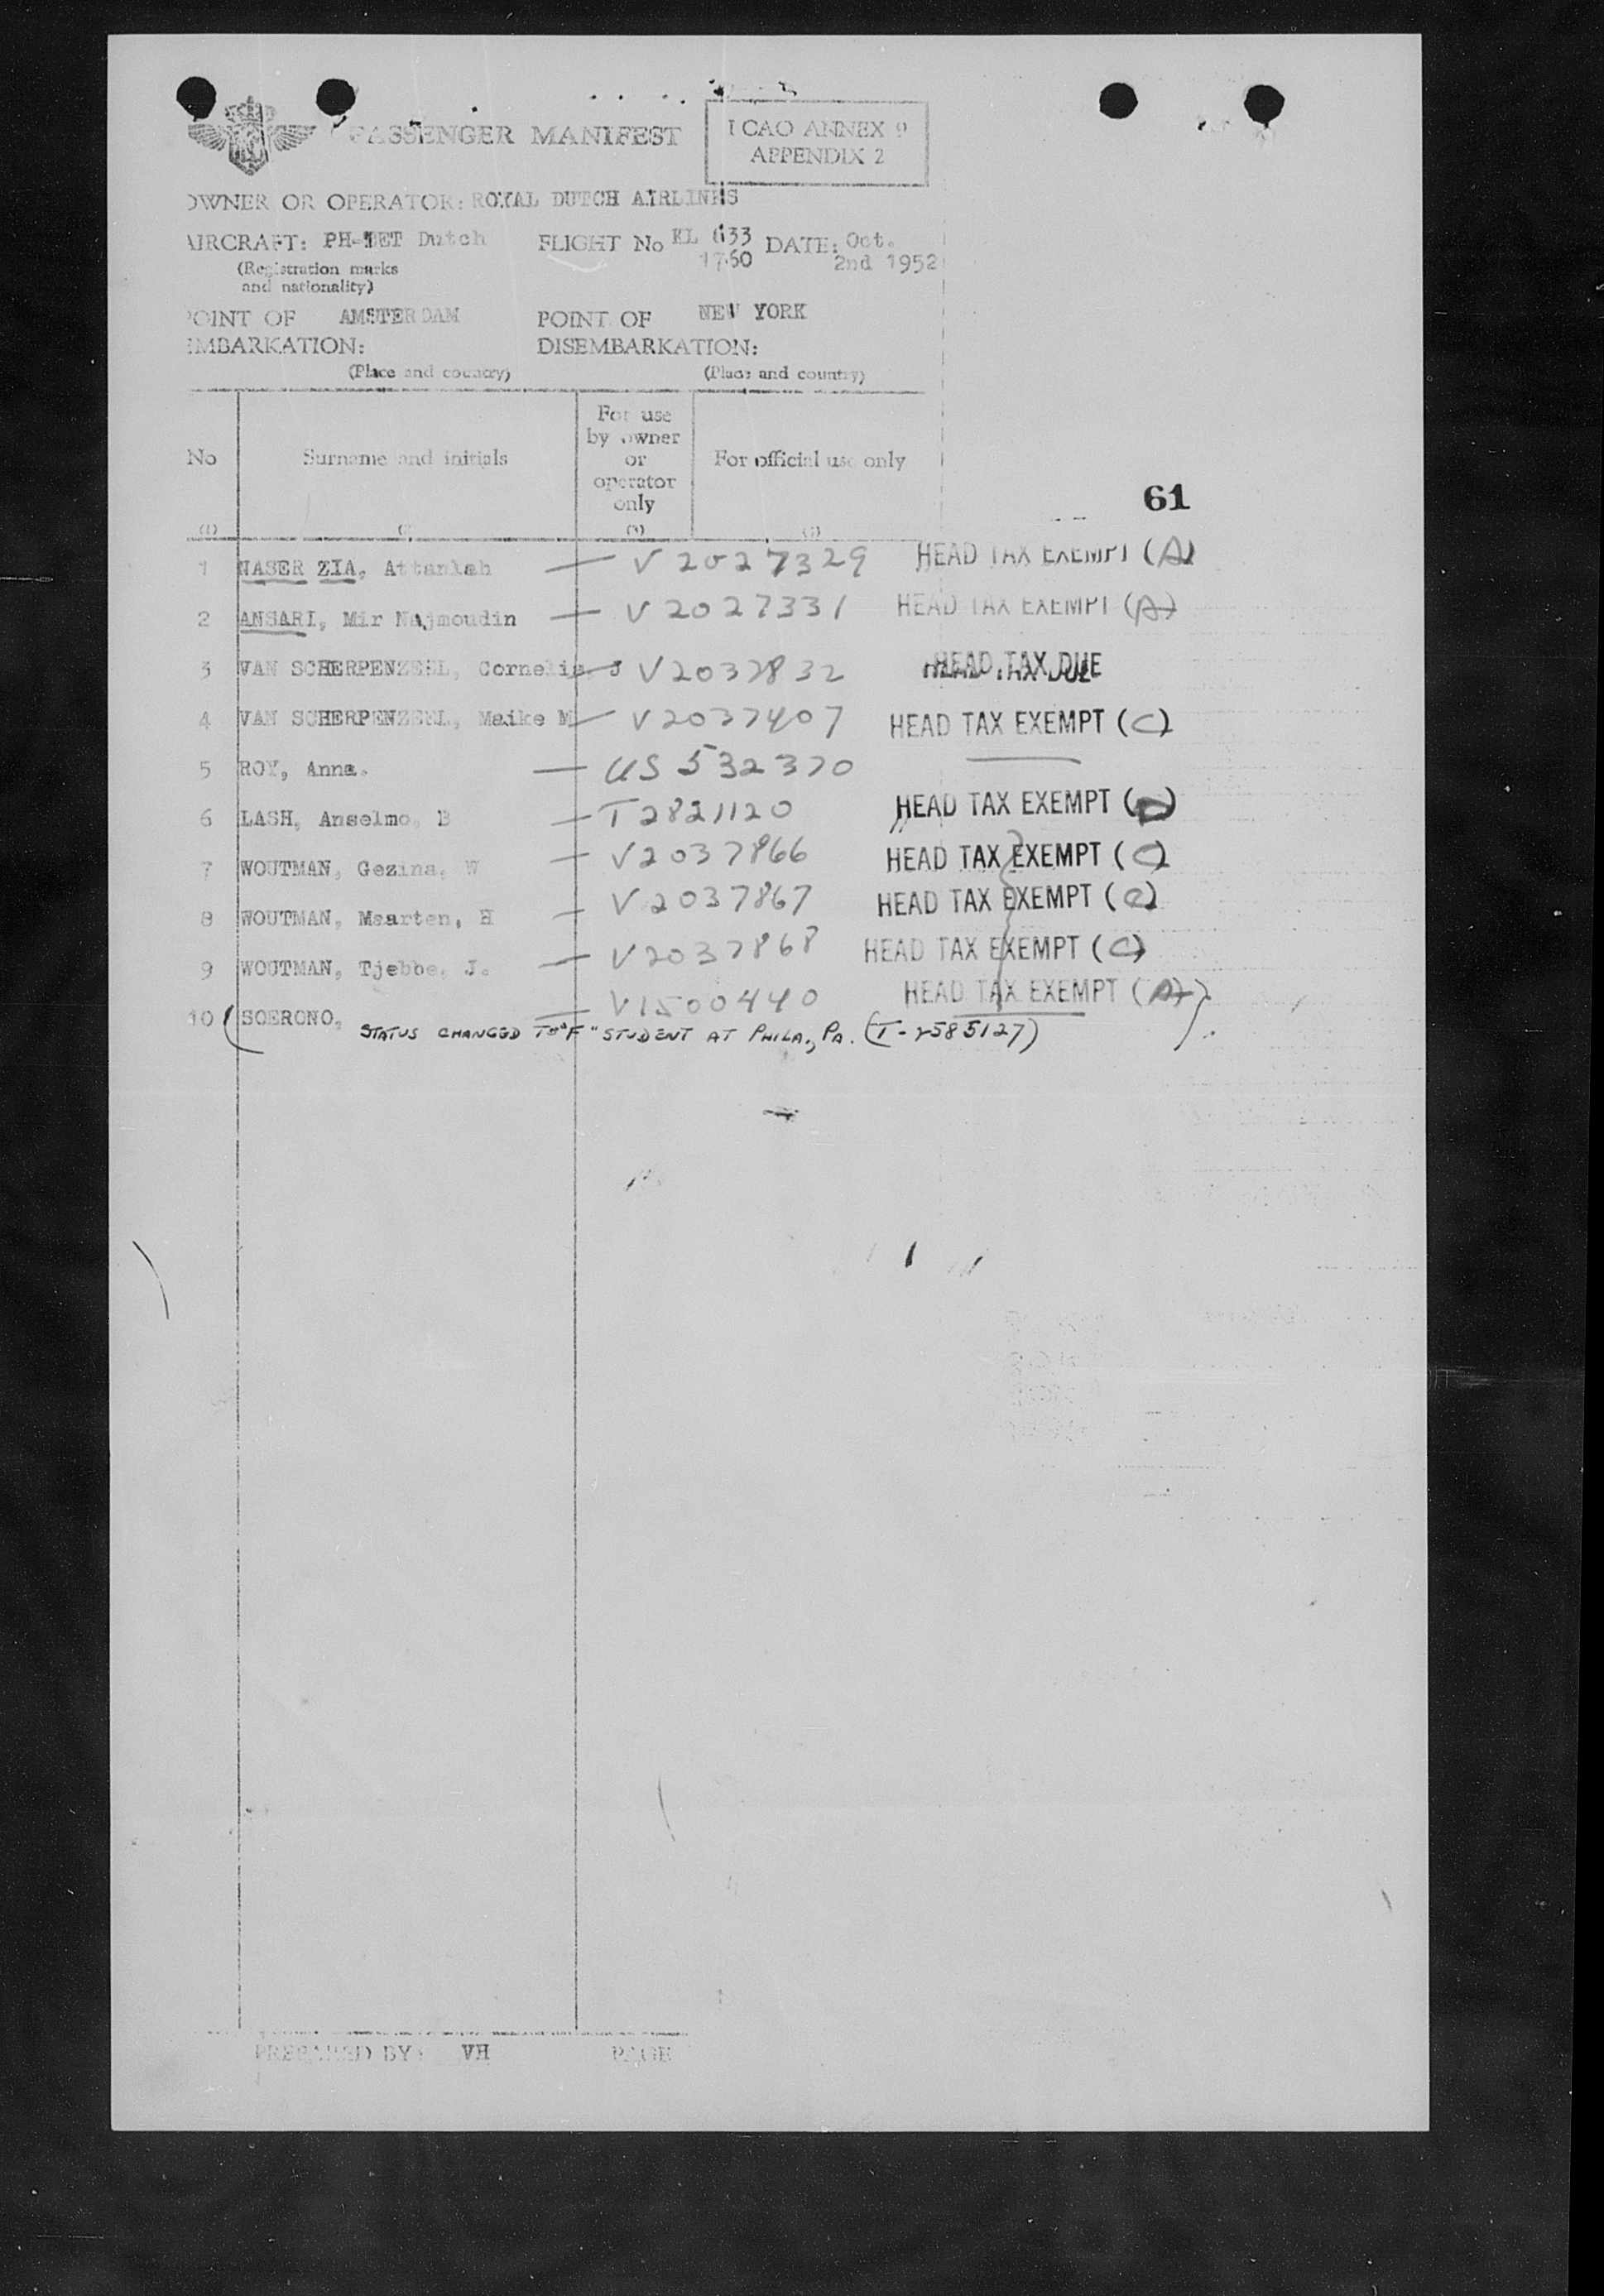 PASSENGER MANIFEST
ICAO ANNEX 9
APPENDIX 2
OWNER OR OPERATOR: ROYAL DUTCH AIRLINES
AIRCRAFT: PH- Dutch FLIGHT No KL 633 DATE: Oct.
1760 2nd 1952
(Registration marks
and nationality)
POINT OF AMSTERDAM POINT OF NEW YORK
EMBARKATION: DISEMBARKATION:
(Place and country) (Place and country)
No Surname and initials For use by owner or operator only For official use only
61
(1)
1 NASER ZIA, Attanlah — V 2027329 HEAD TAX EXEMPT (A)
2 ANSARI, Mir Najmoudin — V 2027331 HEAD TAX EXEMPT (A)
3 VAN SCHERPENZEEL, Cornelis J V 2037832 HEAD TAX DUE
4 VAN SCHERPENZEEL, Maike M — V 2037407 HEAD TAX EXEMPT (C)
5 ROY, Anna. — US 532370 —
6 LASH, Anselmo, B — T 2821120 HEAD TAX EXEMPT
7 WOUTMAN, Gezina, W — V 2037866 HEAD TAX EXEMPT (C)
8 WOUTMAN, Maarten, H — V 2037867 HEAD TAX EXEMPT (C)
9 WOUTMAN, Tjebbe, J. — V 2037868 HEAD TAX EXEMPT (C)
10 (SOERONO, — V1500440 HEAD TAX EXEMPT (A)
STATUS CHANGED TO "F" STUDENT AT PHILA., PA. (T-2585127) ).
PREPARED BY: VH PAGE